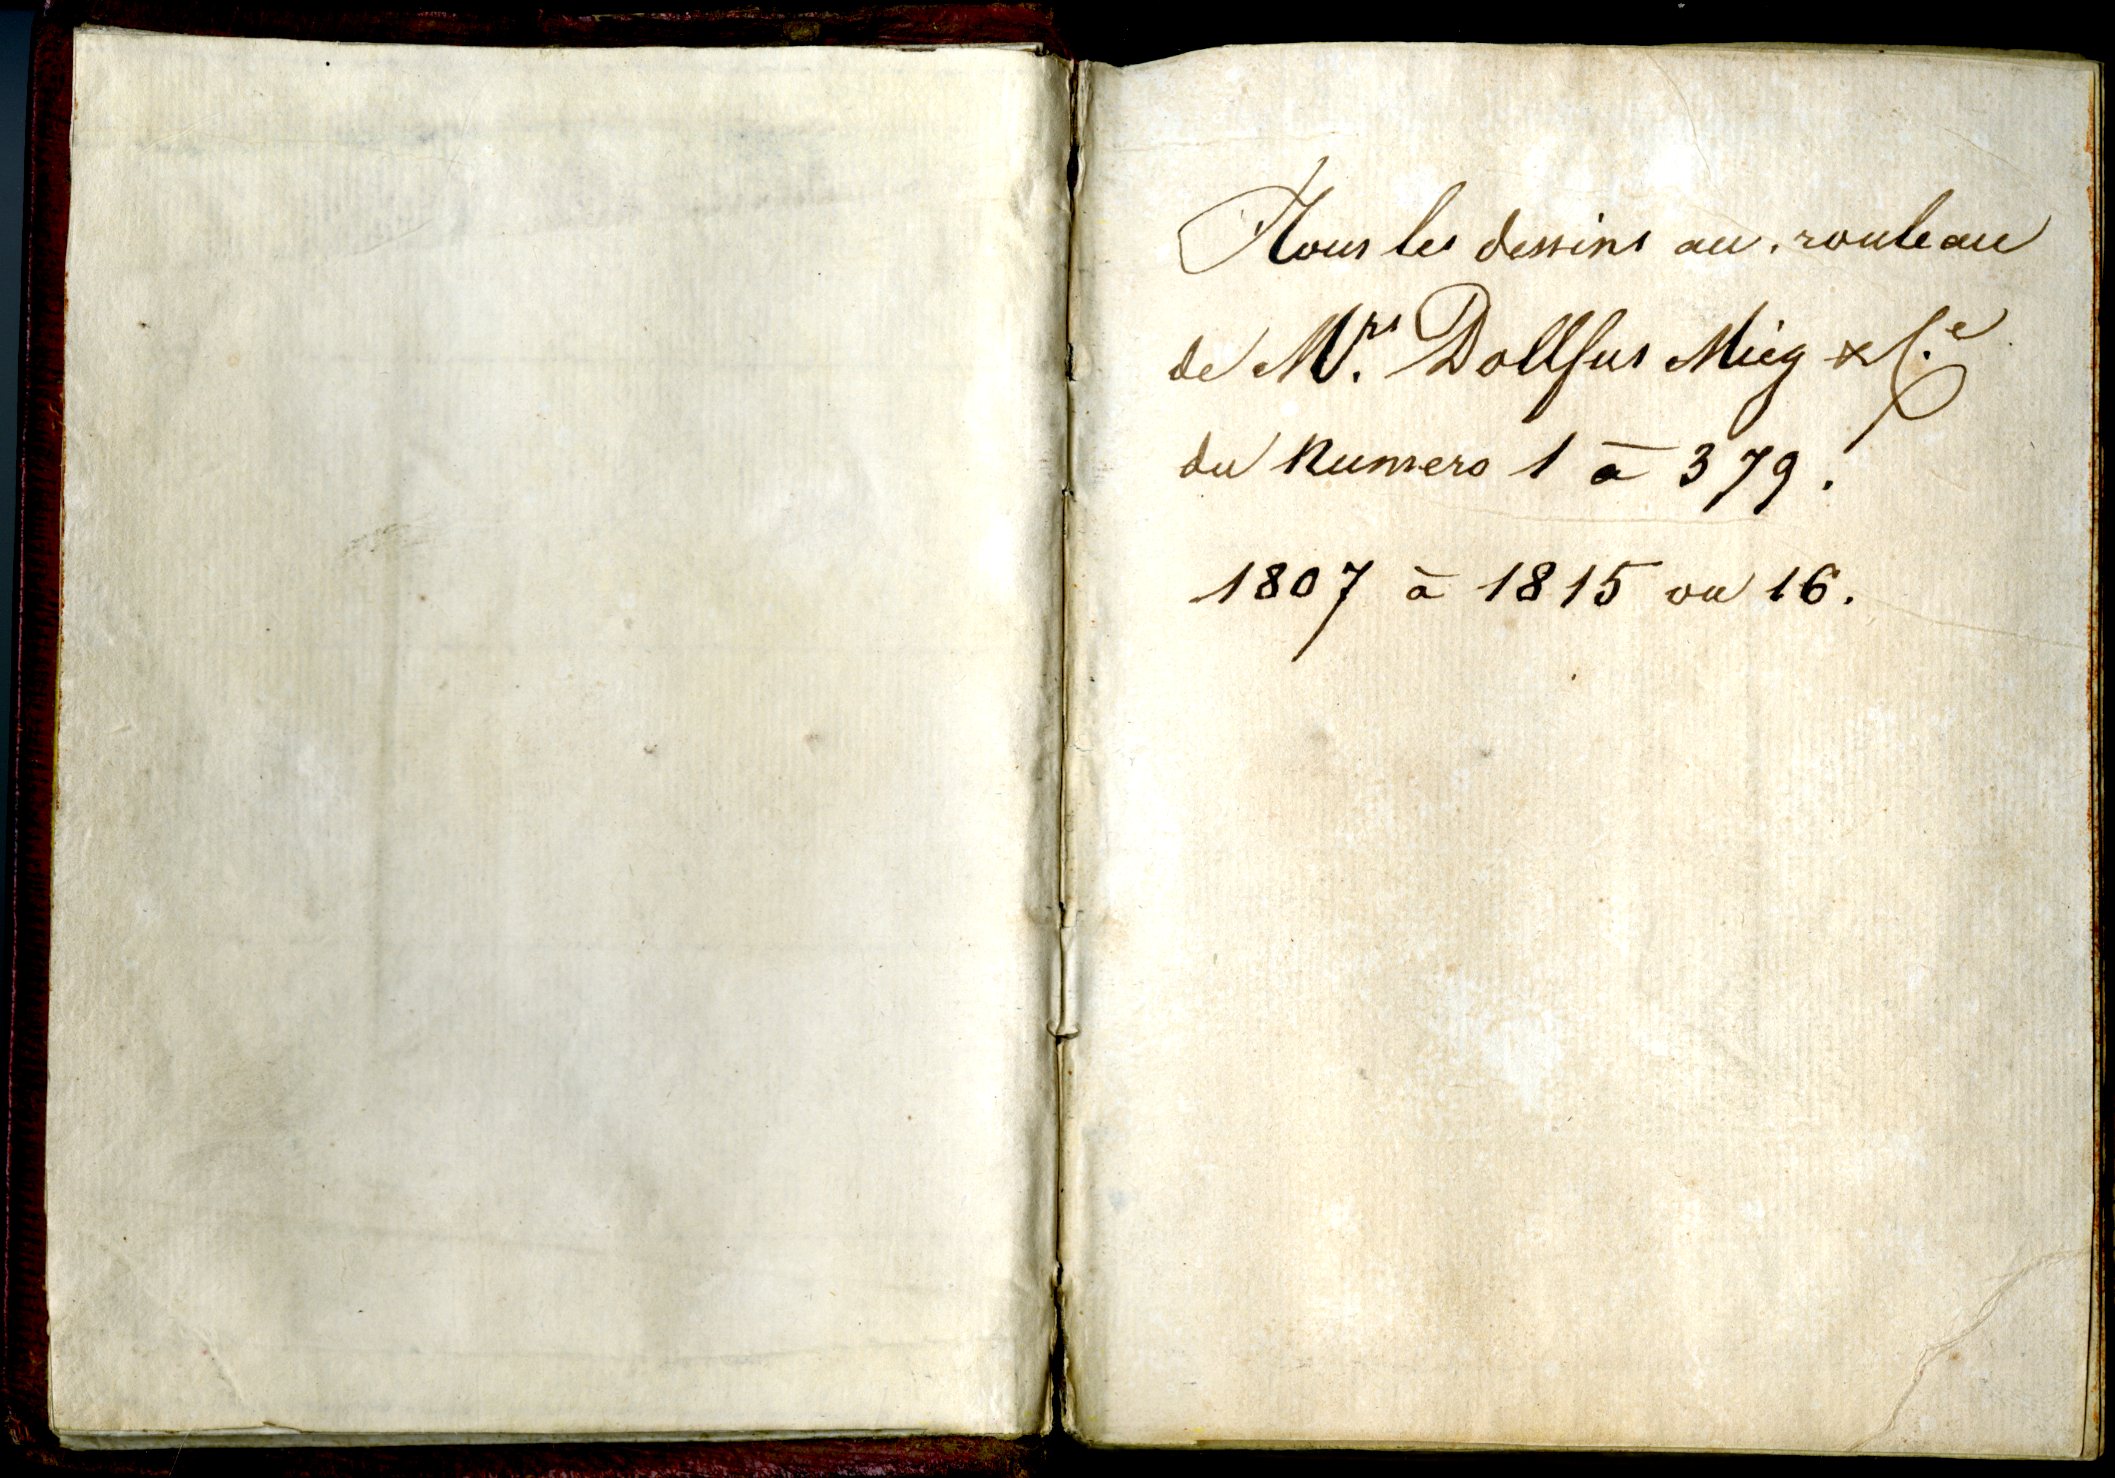 Tous les dessins au rouleau
de M.rs Dollfus Mieg & C.e
du Numero 1 à 379.
1807 à 1815 ou 16.